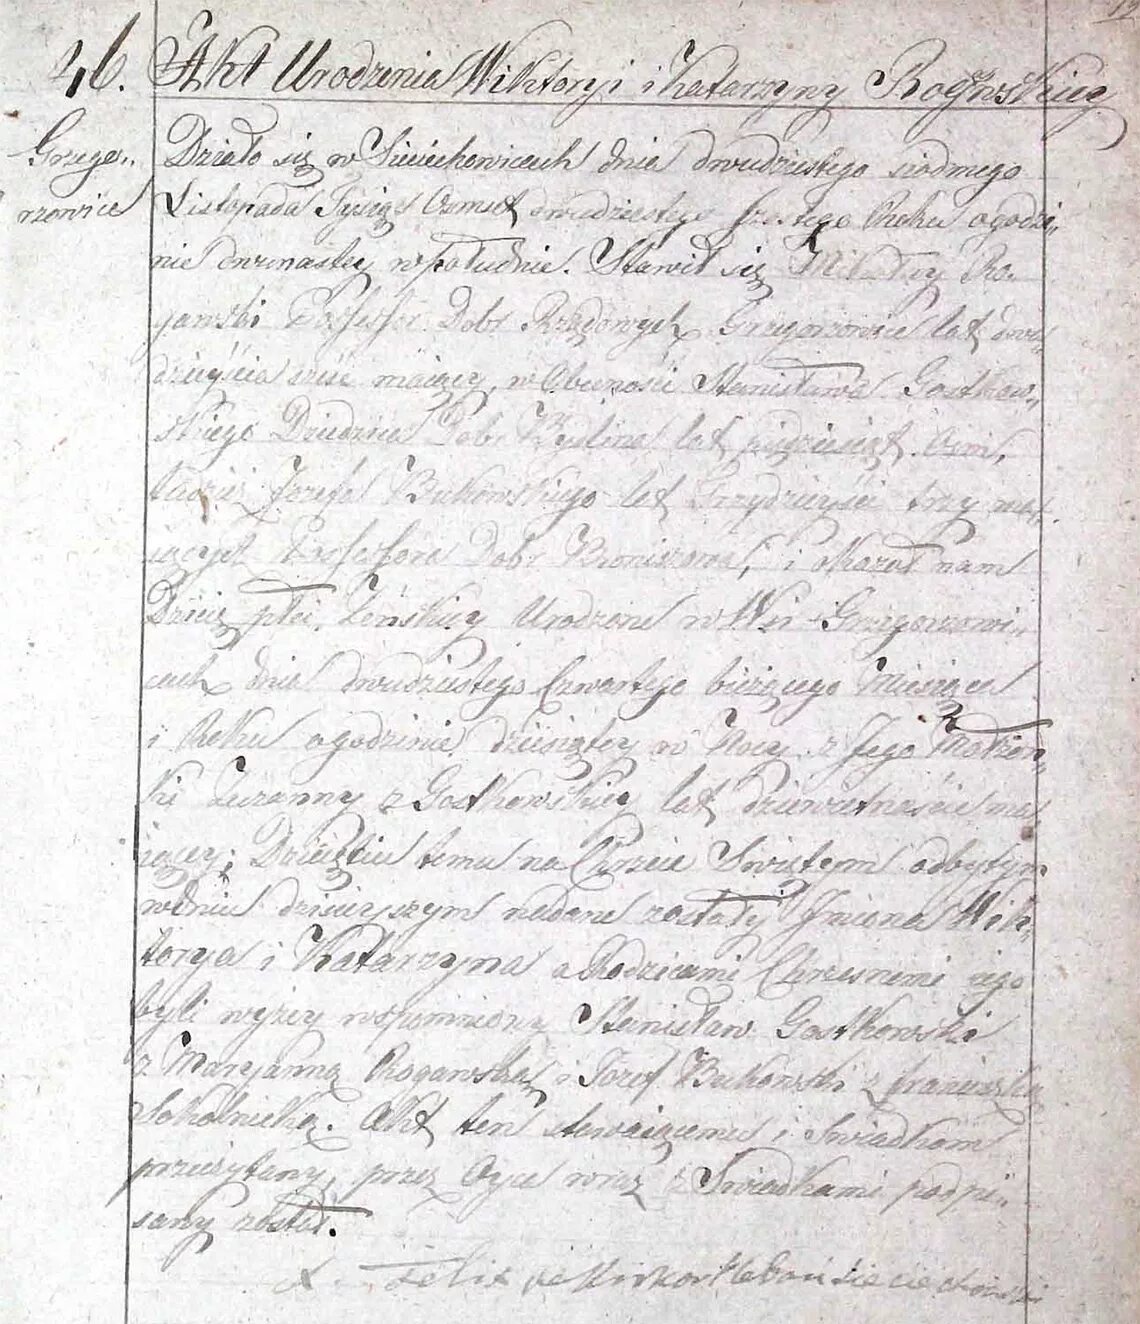 46. Akt Urodzenia Wiktoryi i Katarzyny Rogawskiey
Grzego„
rzowice
Działo się w Sieciechowicach dnia dwudziestego siódmego
Listopada Tysiąc Osmset dwudziestego szostego Roku o godzi„
nie dwunastey w południe. Stawił się Ro„
gawski Possessor Dobr Rządowych Grzegorzowice lat dwa„
dzieścia sześć maiący, w Obecności Stanisława Gostkow„
skiego Dziedzica Dobr lat pięćdziesiąt Osm,
tudzież Jozefa Bukowskiego lat Trzydzieści trzy ma„
iących Possessora Dobr i okazał nam
Dziecię płci Żeńskiey Urodzone w Wsi Grzegorzowi„
cach dnia dwudziestego Czwartego bieżącego Miesiąca
i Roku o godzinie dziesiątey w Nocy z Jego Małżon„
ki Zuzanny z Gostkowskich lat dziewietnaście ma
iącey; Dziecięciu temu na Chrzcie Swiętem odbytym
w dniu dzisieyszym nadane zostały Imiona Wik„
torya i Katarzyna a Rodzicami Chrzesnemi iego
byli wyżey wspomniony Stanisław Gostkowski
z Maryanną Rogawską i Jozef Bukowski z Franciszką
Sokolnicką. Akt ten stawaiącemu i Swiadkom
przeczytany, przez Oyca wraz z Swiadkami podpi„
sany został.
X. Felix